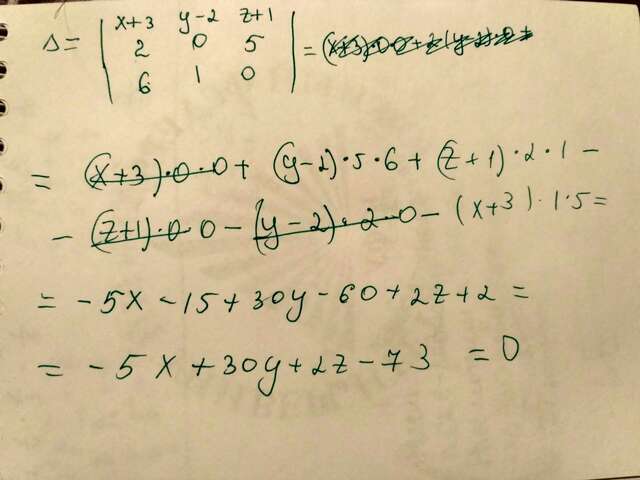 x+3 y-2 z+1
Δ= | 2 0 5 | =
6 1 0
= (x+3)·0·0+ (y-2)·5·6+(z+1)·2·1-
-(z+1)·0·0-(y-2)·2·0-(x+3)·1·5=
= -5x-15+30y-60+2z+2 =
= -5x+30y+2z-73 =0